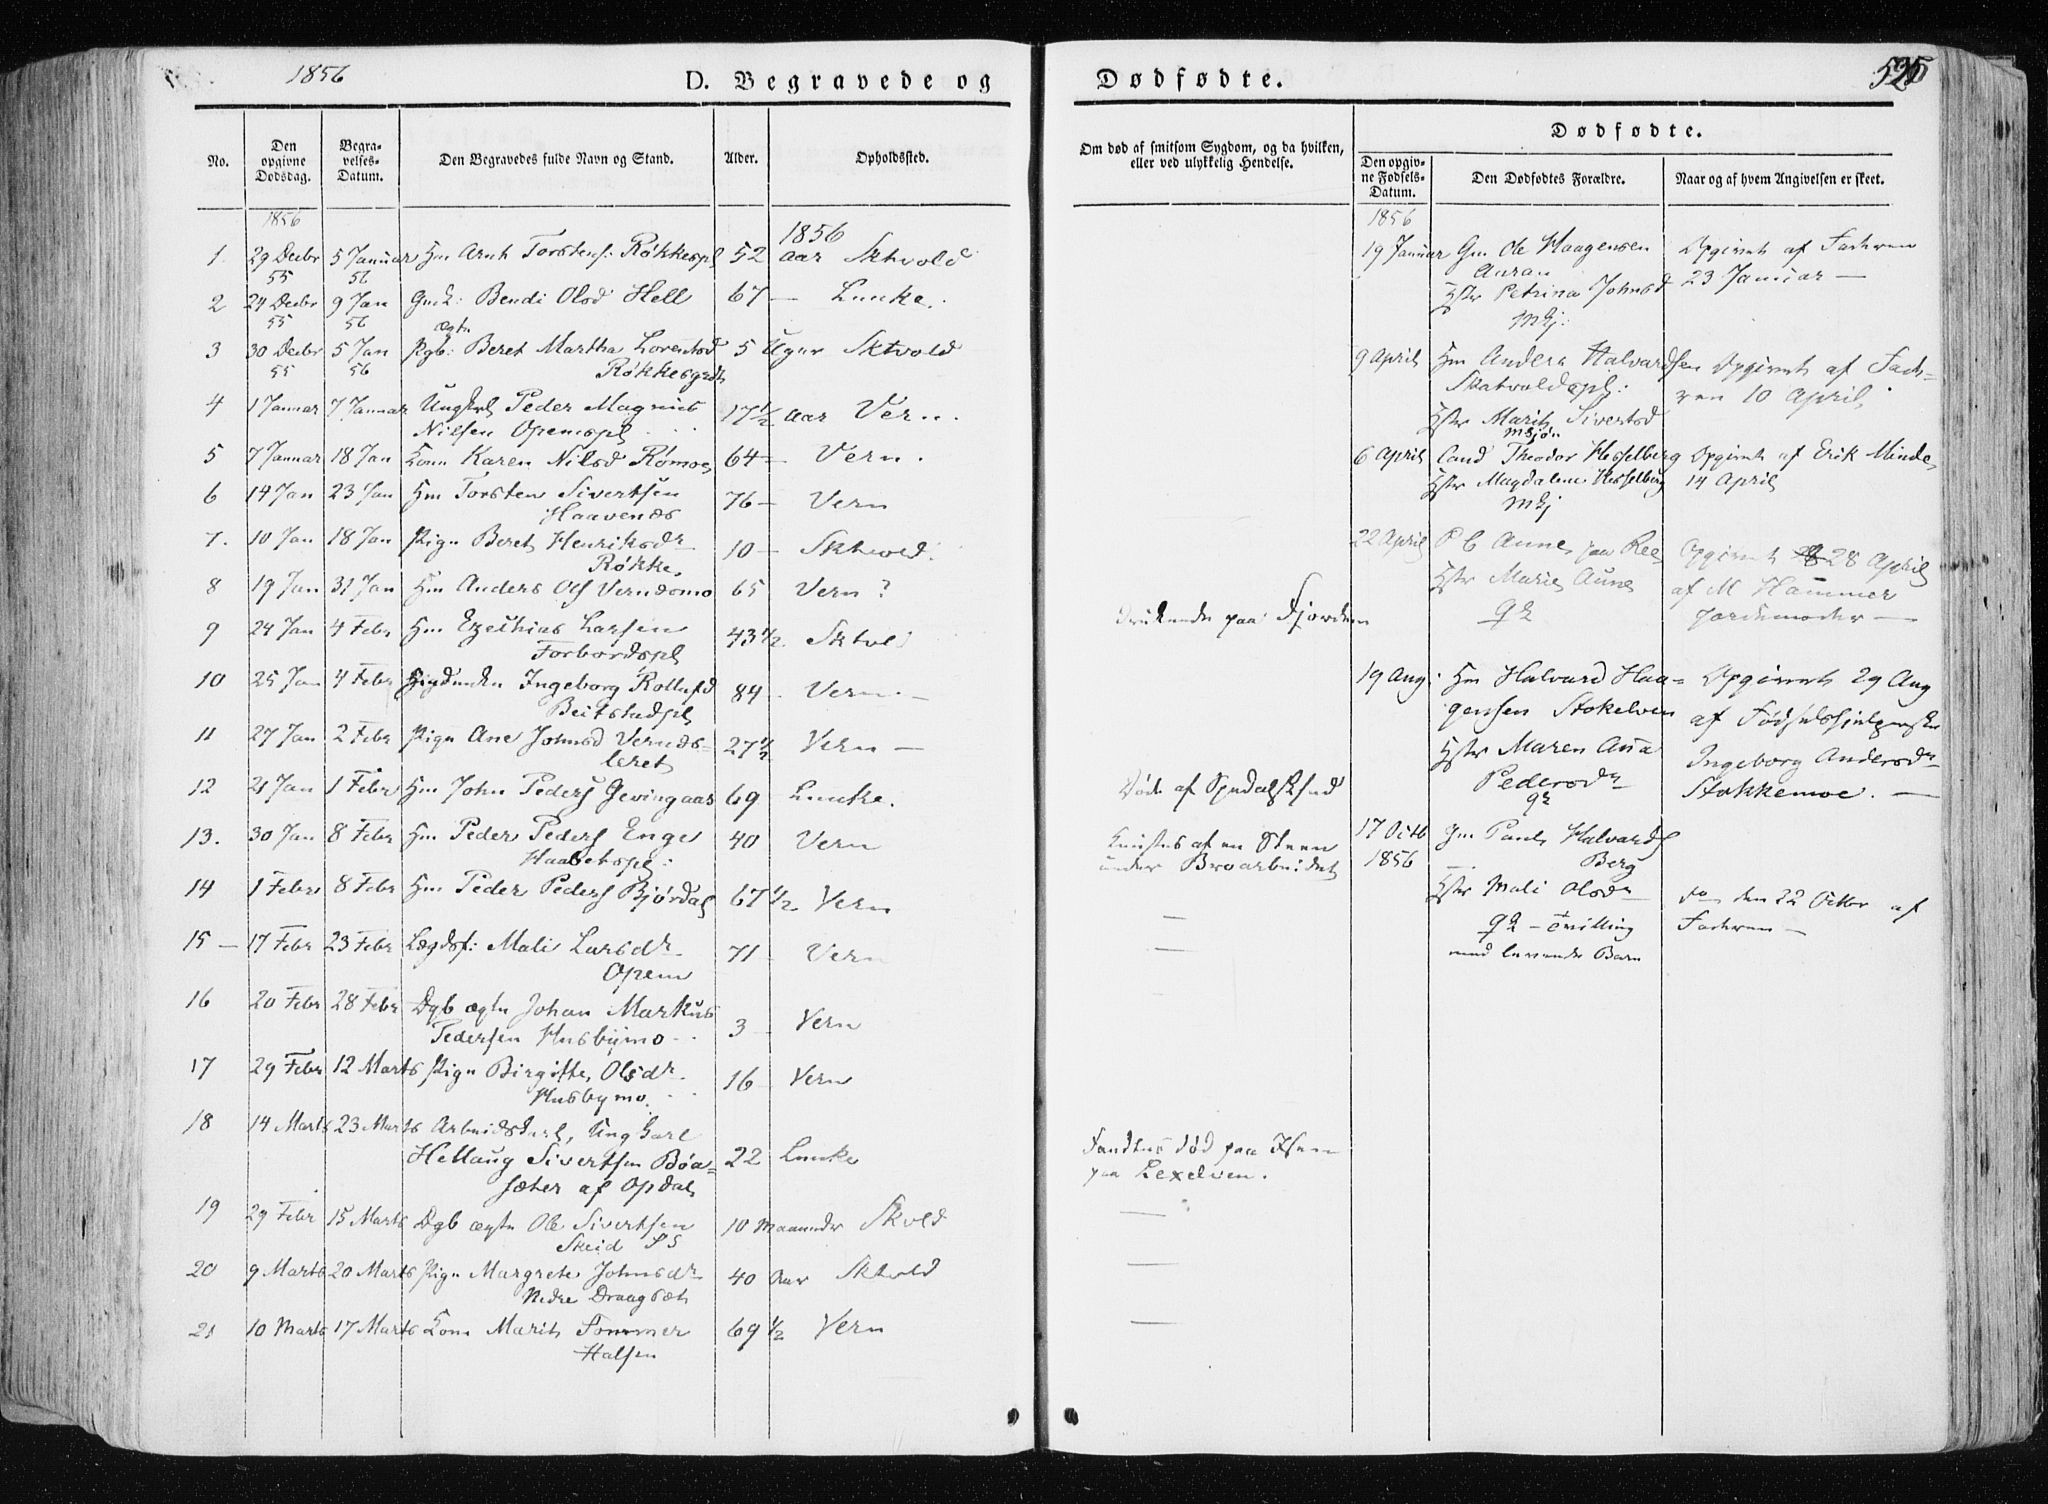 1856
D. Begravede og
Dødfødte.
525
No.
Den opgivne Dødsdag.
Begravelses-Datum.
Den Begravedes fulde Navn og Stand.
Alder.
Opholdssted.
Om død af smitsom Sygdom, og da hvilken, eller ved ulykkelig Hendelse.
Dødfødte.
Den opgivne Fødsels-Datum.
Den Dødfødtes Forældre.
Naar og af hvem Angivelsen er skeet.
1856
1856
1 29 Decbr 55 5 Januar 56 Hm Arnt Torstens: Røkkespl 52 aar Sktvold
2 24 Decbr 55 9 Jan 56 Bendi Olsd Hell 67 — Luncke.
3 30 Decbr 55 5 Jan 56 Pgb: ægte Beret Martha Lorentsd 5 Uger Sktvold
4 1 Januar 7 Januar Ungkrl Peder Magnus 17½ aar Vern.
Nilsen Opemspl
5 7 Januar 18 Jan Konn Karen Nilsd Rømo 64 — Vern.
6 14 Jan 23 Jan Hm Torsten Sivertsen 76 — Vern
7. 10 Jan 18 Jan Pige Beret Henriksdr 10 — Sktvold.
Røkke
8 19 Jan 31 Jan Hm Anders Ols Verndsmo 65 Vern?
9 24 Jan 4 Febr Hm Ezechias Larsen 43½ Sktvl
Forbordspl
10 25 Jan 4 Febr Ingeborg Rollufsd 84 . Vern. —
Beitstadpl
11 27 Jan 2 Febr Pige Ane Johnsd Vernds- 27½ Vern —
leret
12 21 Jan 1 Febr Hm John Peders Gevingaas 69 Luncke.
13. 30 Jan 8 Febr Hm Peder Peders Enge 40 Vern
14 1 Febr 8 Febr Hm Peder Peders Bjørdal 67½ Vern
15 — 17 Febr 23 Febr Lægdsl: Mali Larsdr 71 — Vern
Opem
16 20 Febr 28 Febr Dgb ægte Johan Markus 3 — Vern
Pedersen Husbymo
17 29 Febr 12 Marts Pige Birgitte Olsdr 16 — Vern
Husbymo.
18 14 Marts 23 Marts Arbeidskarl, Ungkarl
Hellaug Sivertsen Bøa- 22 Luncke
sæter af Opdal
19 29 Febr 15 Marts Dgb ægte Ole Sivertsen 10 Maaneder Sktvold
Skeid
20 9 Marts 20 Marts Pige Margrete Johnsdr 40 Aar Sktvold
Nedre Draagsæt
21 10 Marts 17 Marts Kone Marit Tommer 69½ Vern
Halsen
Druknede paa Fjorden
Døde af Spedalskhed
Knustes af en Steen
under Broarbeidet
Fandtes død paa Isen
paa Lexelven.
1856
19 Januar Gm Ole Haagensen Opgivet af Faderen
Auran 23 Januar —
Hstr Petrina Johnsd
Mkj:
9 April Hm Anders Halvardsen Opgivet af Fade-
Skatvoldspl: ren 10 April
Hstr Marit Sivertsd
6 April Cand Theodor Hesselberg Opgivet af Erik Minde
Hstr Magdalene Hesselberg 14 April
Mkj
22 April P C Aune paa Ree Opgivet 28 April
Hstr Marie Aune af M Hammer
Qk Jordemoder —
19 Aug: Hm Halvard Haa- Opgivet 29 Aug
gensen Stokelven af Fødselshjelpersken
Hstr Maren Ana Ingeborg Andersdr
Pedersdr Stokkemoe. —
Qk
17 Octb 1856 Paul Halvards
Berg
Hstr Mali Olsdr den 22 Octbr af
Qk — Tvilling Faderen —
med levende Barn